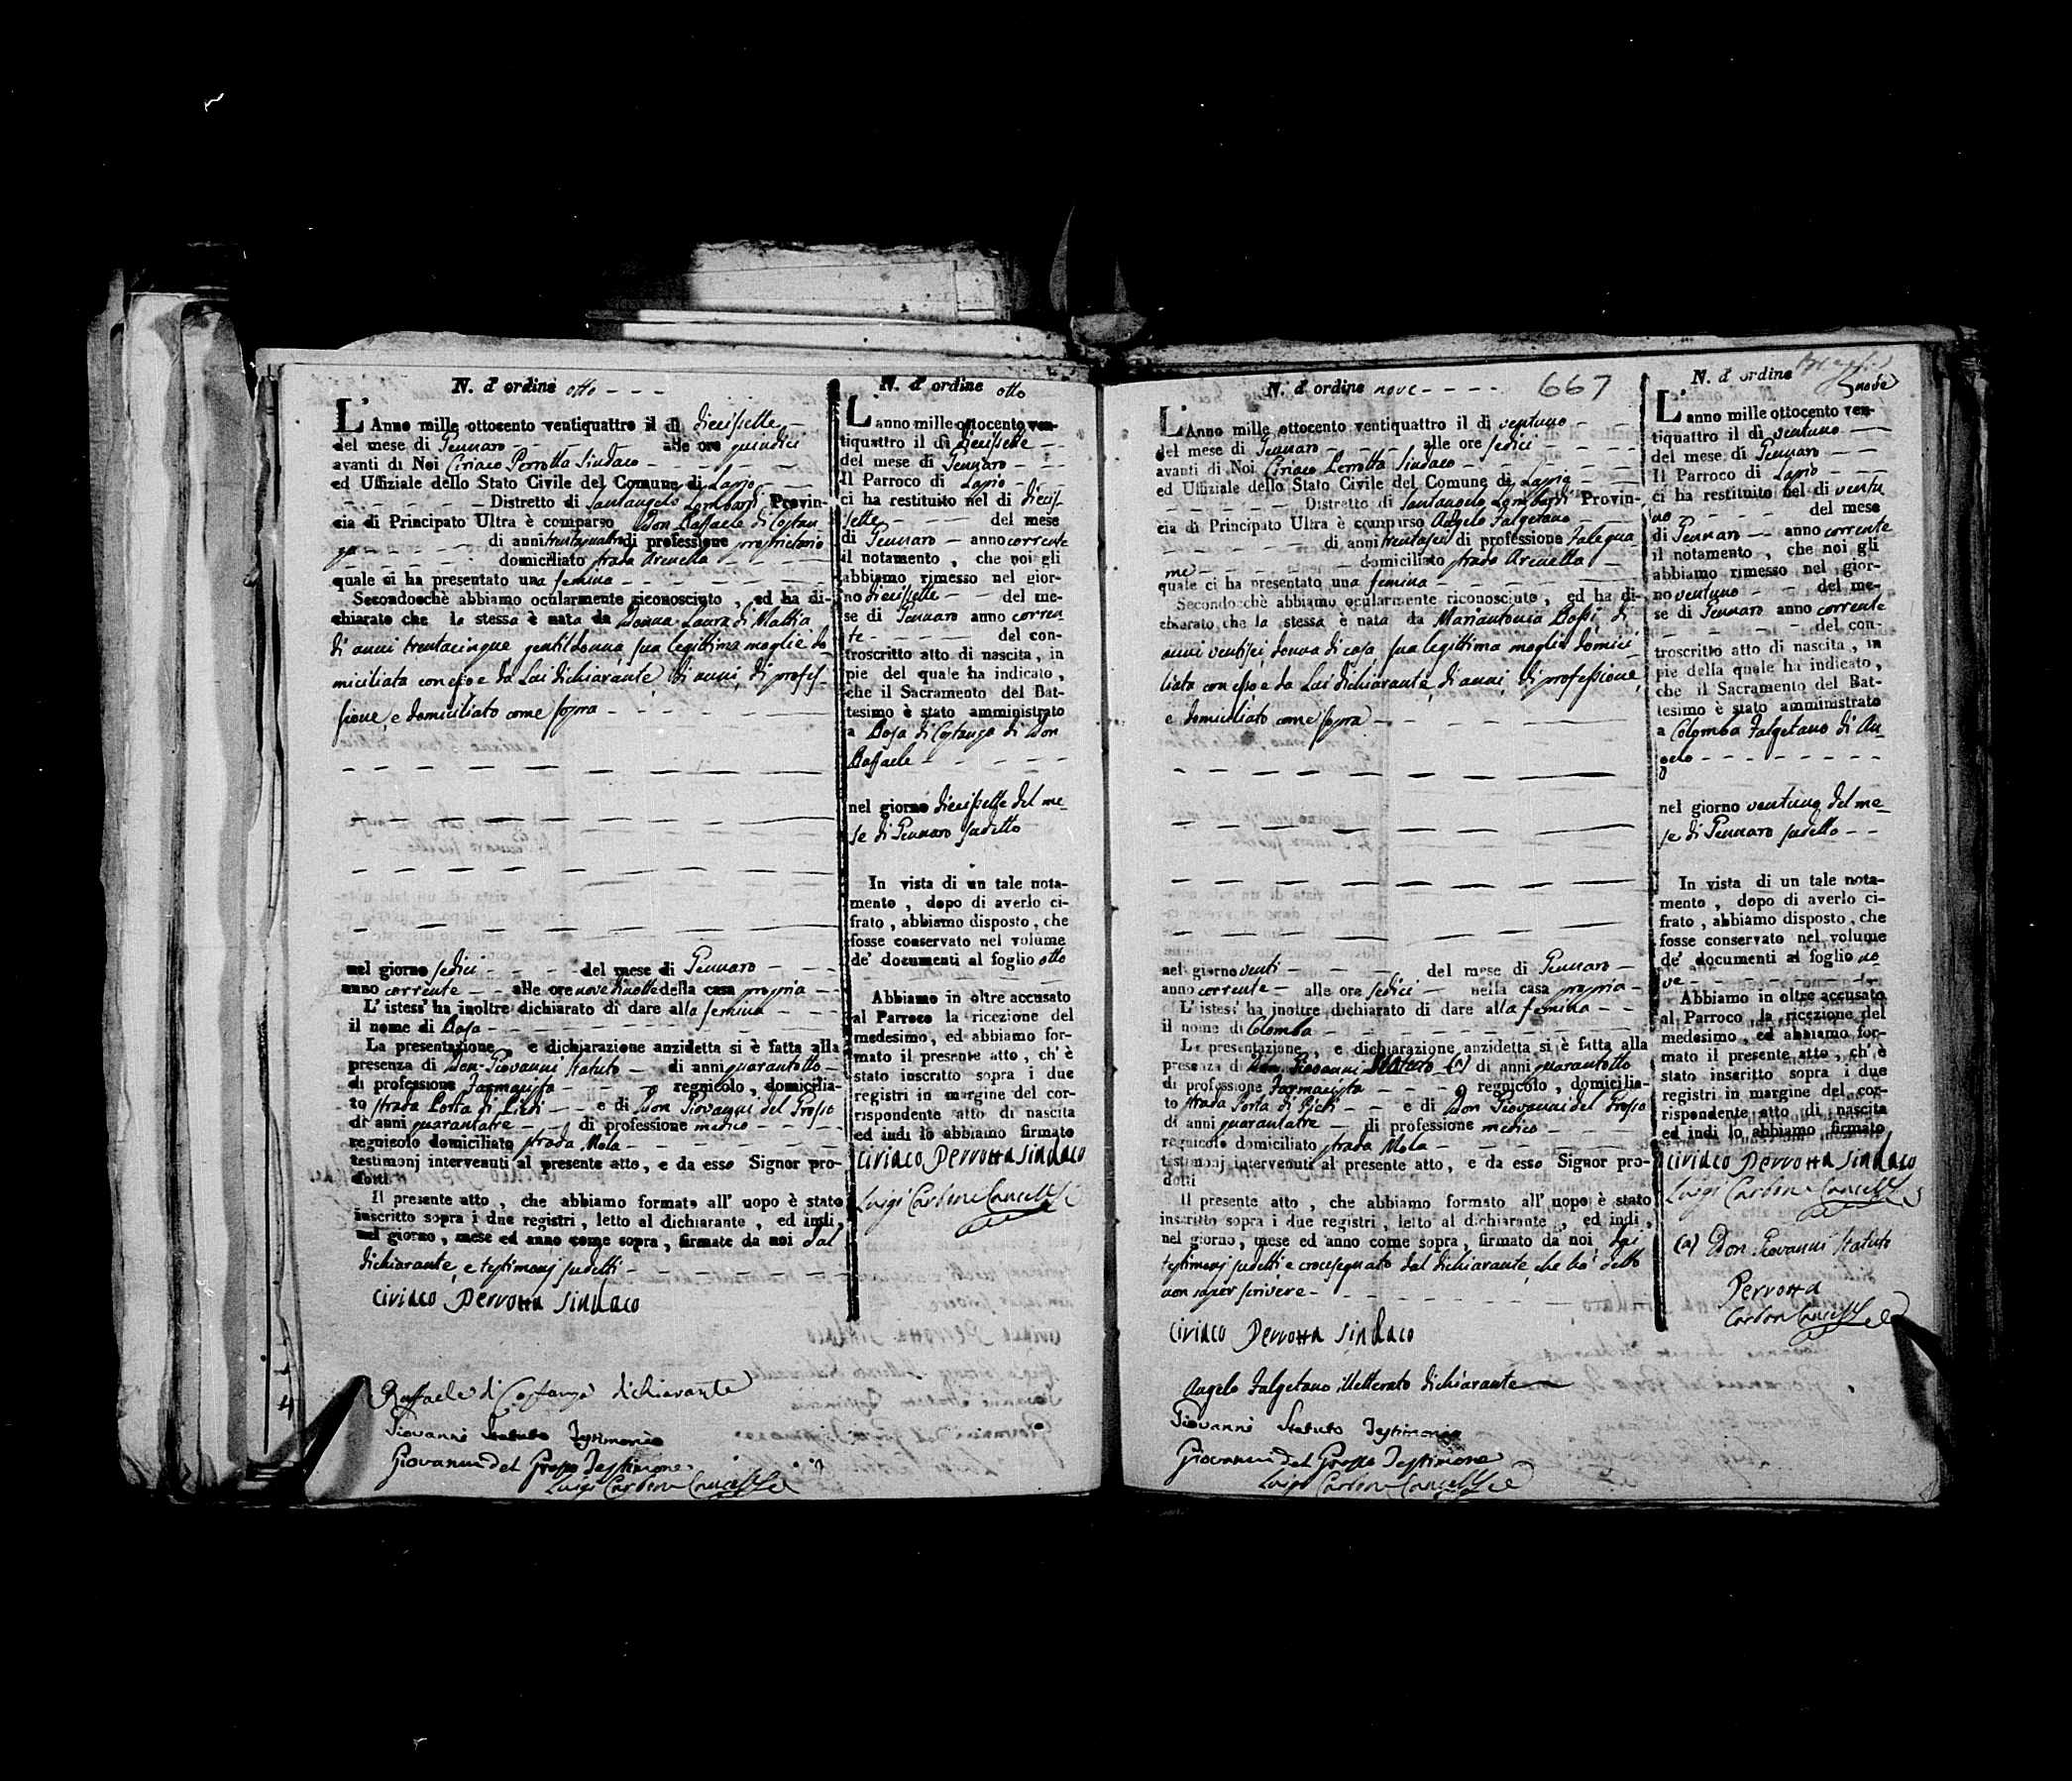 N. d' ordine otto
L' Anno mille ottocento ventiquattro il dì diecissette
del mese di Gennaro alle ore quindici
avanti di Noi Ciriaco Perrotta Sindaco
ed Uffiziale dello Stato Civile del Comune di Lapio
Distretto di Santangelo Lombardi Provin-
cia di Principato Ultra è comparso Don Raffaele di Costan
za di anni trentaquattro di professione proprietario
domiciliato strada Arenella
quale ci ha presentato una femina
Secondocchè abbiamo ocularmente riconosciuto, ed ha di-
chiarato che la stessa è nata da Donna Laura di Mattia
di anni trentacinque gentildonna, sua legittima moglie do-
miciliata con esso e da Lui dichiarante, di anni, di profes-
sione, e domiciliato come sopra
nel giorno sedici del mese di Gennaro
anno corrente alle ore nove di notte della casa propria
L' istess' ha inoltre dichiarato di dare alla femina
il nome di Rosa
La presentazione e dichiarazione anzidetta si è fatta alla
presenza di Don Giovanni Statuto di anni quarantotto
di professione Farmacista regnicolo, domicilia-
to strada Porta di Piedi e di Don Giovanni del Grosso
di anni quarantatre di professione medico
regnicolo domiciliato strada Mola
testimonj intervenuti al presente atto, e da esso Signor pro-
dotti
Il presente atto, che abbiamo formato all' uopo è stato
inscritto sopra i due registri, letto al dichiarante, ed indi,
nel giorno, mese ed anno come sopra, firmato da noi dal
dichiarante, e testimonj sudetti
Ciriaco Perrotta Sindaco
Raffaele di Costanza dichiarante
Giovanni Statuto Testimonio
Giovanni del Grosso Testimone
Luigi Carbone Cancelle
N. d' ordine otto
L' anno mille ottocento ven-
tiquattro il dì diecissette
del mese di Gennaro
Il Parroco di Lapio
ci ha restituito nel dì diecis-
sette del mese
di Gennaro anno corrente
il notamento, che noi gli
abbiamo rimesso nel gior-
no diecissette del me-
se di Gennaro anno corren
te del con-
troscritto atto di nascita, in
pie del quale ha indicato,
che il Sacramento del Bat-
tesimo è stato amministrato
a Rosa di Costanza di Don
Raffaele
nel giorno diecissette del me-
se di Gennaro sudetto
In vista di un tale nota-
mento, dopo di averlo ci-
frato, abbiamo disposto, che
fosse conservato nel volume
de' documenti al foglio otto
Abbiamo in oltre accusato
al Parroco la ricezione del
medesimo, ed abbiamo for-
mato il presente atto, ch' è
stato inscritto sopra i due
registri in margine del cor-
rispondente atto di nascita
ed indi lo abbiamo firmato
Ciriaco Perrotta Sindaco
Luigi Carbone Cancelle
N. d' ordine nove
667
L' Anno mille ottocento ventiquattro il dì ventuno
del mese di Gennaro alle ore sedici
avanti di Noi Ciriaco Perrotta Sindaco
ed Uffiziale dello Stato Civile del Comune di Lapio
Distretto di Santangelo Lombardi Provin-
cia di Principato Ultra è comparso Angelo Falgetano
di anni trentasei di professione Falegna-
me domiciliato strada Arenella
quale ci ha presentato una femina
Secondocchè abbiamo ocularmente riconosciuto, ed ha di-
chiarato che la stessa è nata da Mariantonia Rossi, di
anni ventisei, donna di casa, sua legittima moglie domici-
liata con esso e da Lui dichiarante, di anni, di professione,
e domiciliato come sopra
nel giorno venti del mese di Gennaro
anno corrente alle ore sedici nella casa propria
L' istess' ha inoltre dichiarato di dare alla femina
il nome di Colomba
La presentazione, e dichiarazione anzidetta si è fatta alla
presenza di Don Giovanni Statuto (a) di anni quarantotto
di professione Farmacista regnicolo, domicilia-
to strada Porta di Piedi e di Don Giovanni del Grosso
di anni quarantatre di professione medico
regnicolo domiciliato strada Mola
testimonj intervenuti al presente atto, e da esso Signor pro-
dotti
Il presente atto, che abbiamo formato all' uopo è stato
inscritto sopra i due registri, letto al dichiarante, ed indi,
nel giorno, mese ed anno come sopra, firmato da noi dai
testimonj sudetti e crocesegnato dal dichiarante, che ha detto
non saper scrivere
Ciriaco Perrotta Sindaco
Angelo Falgetano illetterato dichiarante
Giovanni Statuto Testimonio
Giovanni del Grosso Testimone
Luigi Carbone Cancelle
N. d' ordine
nove
L' anno mille ottocento ven-
tiquattro il dì ventuno
del mese di Gennaro
Il Parroco di Lapio
ci ha restituito nel dì ventu
no del mese
di Gennaro anno corrente
il notamento, che noi gli
abbiamo rimesso nel gior-
no ventuno del me-
se di Gennaro anno corrente
del con-
troscritto atto di nascita, in
pie della quale ha indicato,
che il Sacramento del Bat-
tesimo è stato amministrato
a Colomba Falgetano di An-
gelo
nel giorno ventuno del me-
se di Gennaro sudetto
In vista di un tale nota-
mento, dopo di averlo ci-
frato, abbiamo disposto, che
fosse conservato nel volume
de' documenti al foglio no-
ve
Abbiamo in oltre accusato
al Parroco, la ricezione del
medesimo, ed abbiamo for-
mato il presente atto, ch' è
stato inscritto sopra i due
registri in margine del cor-
rispondente atto di nascita
ed indi lo abbiamo firmato
Ciriaco Perrotta Sindaco
Luigi Carbone Cancelle
(a) Don Giovanni Statuto
Perrotta
Carbon Cancelle